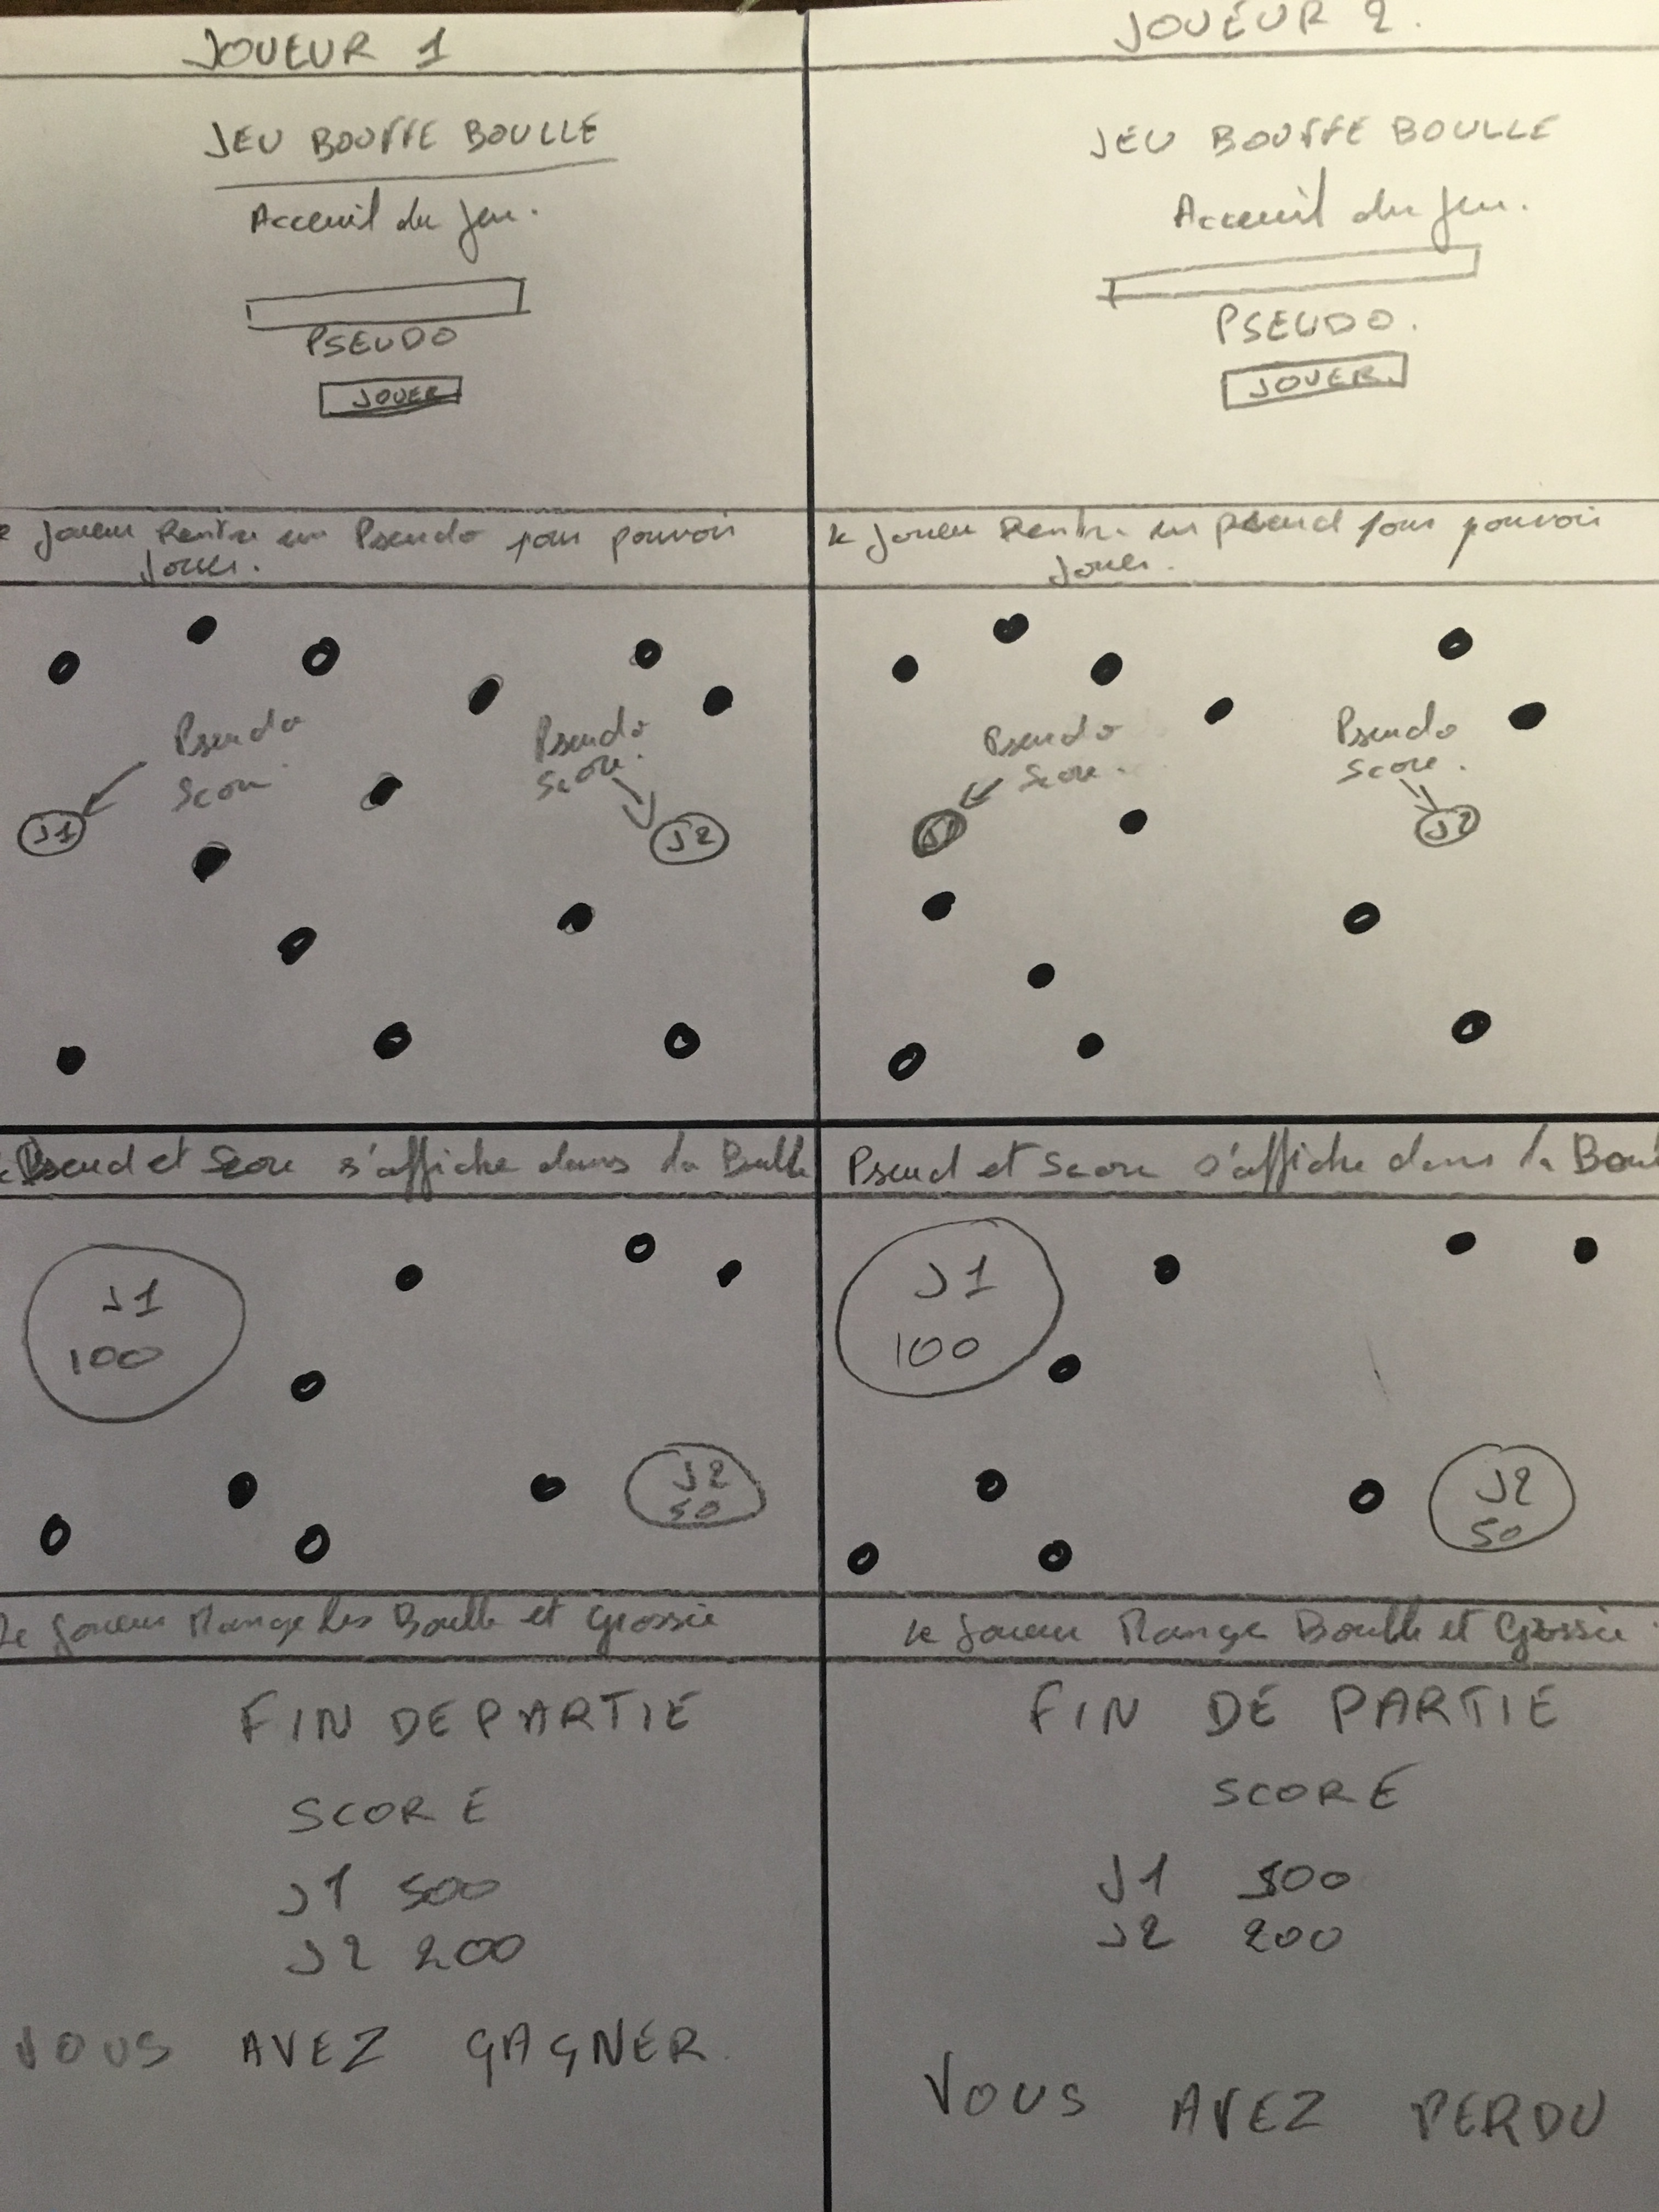 JOUEUR 1
JEU BOUFFE BOULLE
Acceuil du jeu.
PSEUDO
JOUER
Joueur Rentre un Pseudo pour pouvoir
Jouer.
Pseudo
Score
Pseudo
Score.
J1
J2
Pseud et Score s'affiche dans la Boulle
J1
100
J2
50
Le Joueur Mange les Boulle et Grossie
FIN DE PARTIE
SCORE
J1 500
J2 200
VOUS AVEZ GAGNER.
JOUEUR 2.
JEU BOUFFE BOULLE
Acceuil du Jeu.
PSEUDO.
JOUER.
le Joueur Rentre un pseud pour pouvoir
Jouer.
Pseudo
Score.
Pseudo
Score.
J1
J2
Pseud et Score s'affiche dans la Boul
J1
100
J2
50
le Joueur Mange Boulle et Grossie.
FIN DE PARTIE
SCORE
J1 500
J2 200
VOUS AVEZ PERDU